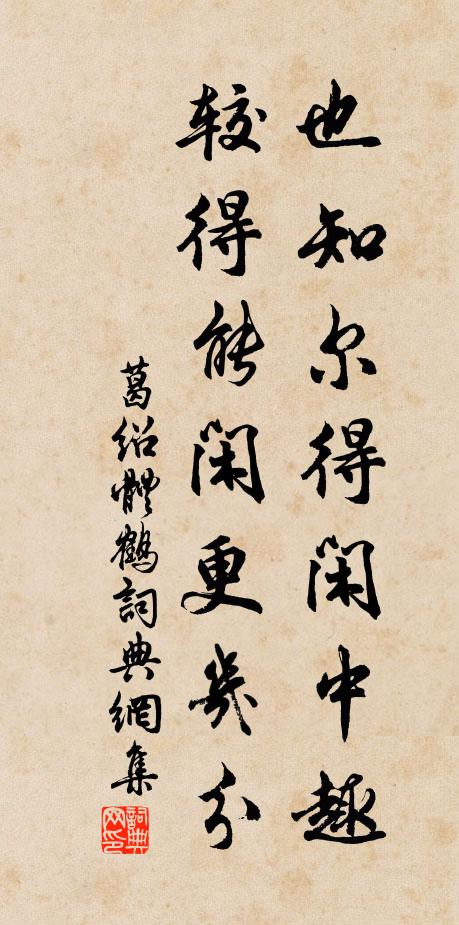 也知尔得闲中趣
较得能闲更几分
葛绍體鹤詞典網集
詞典
网印